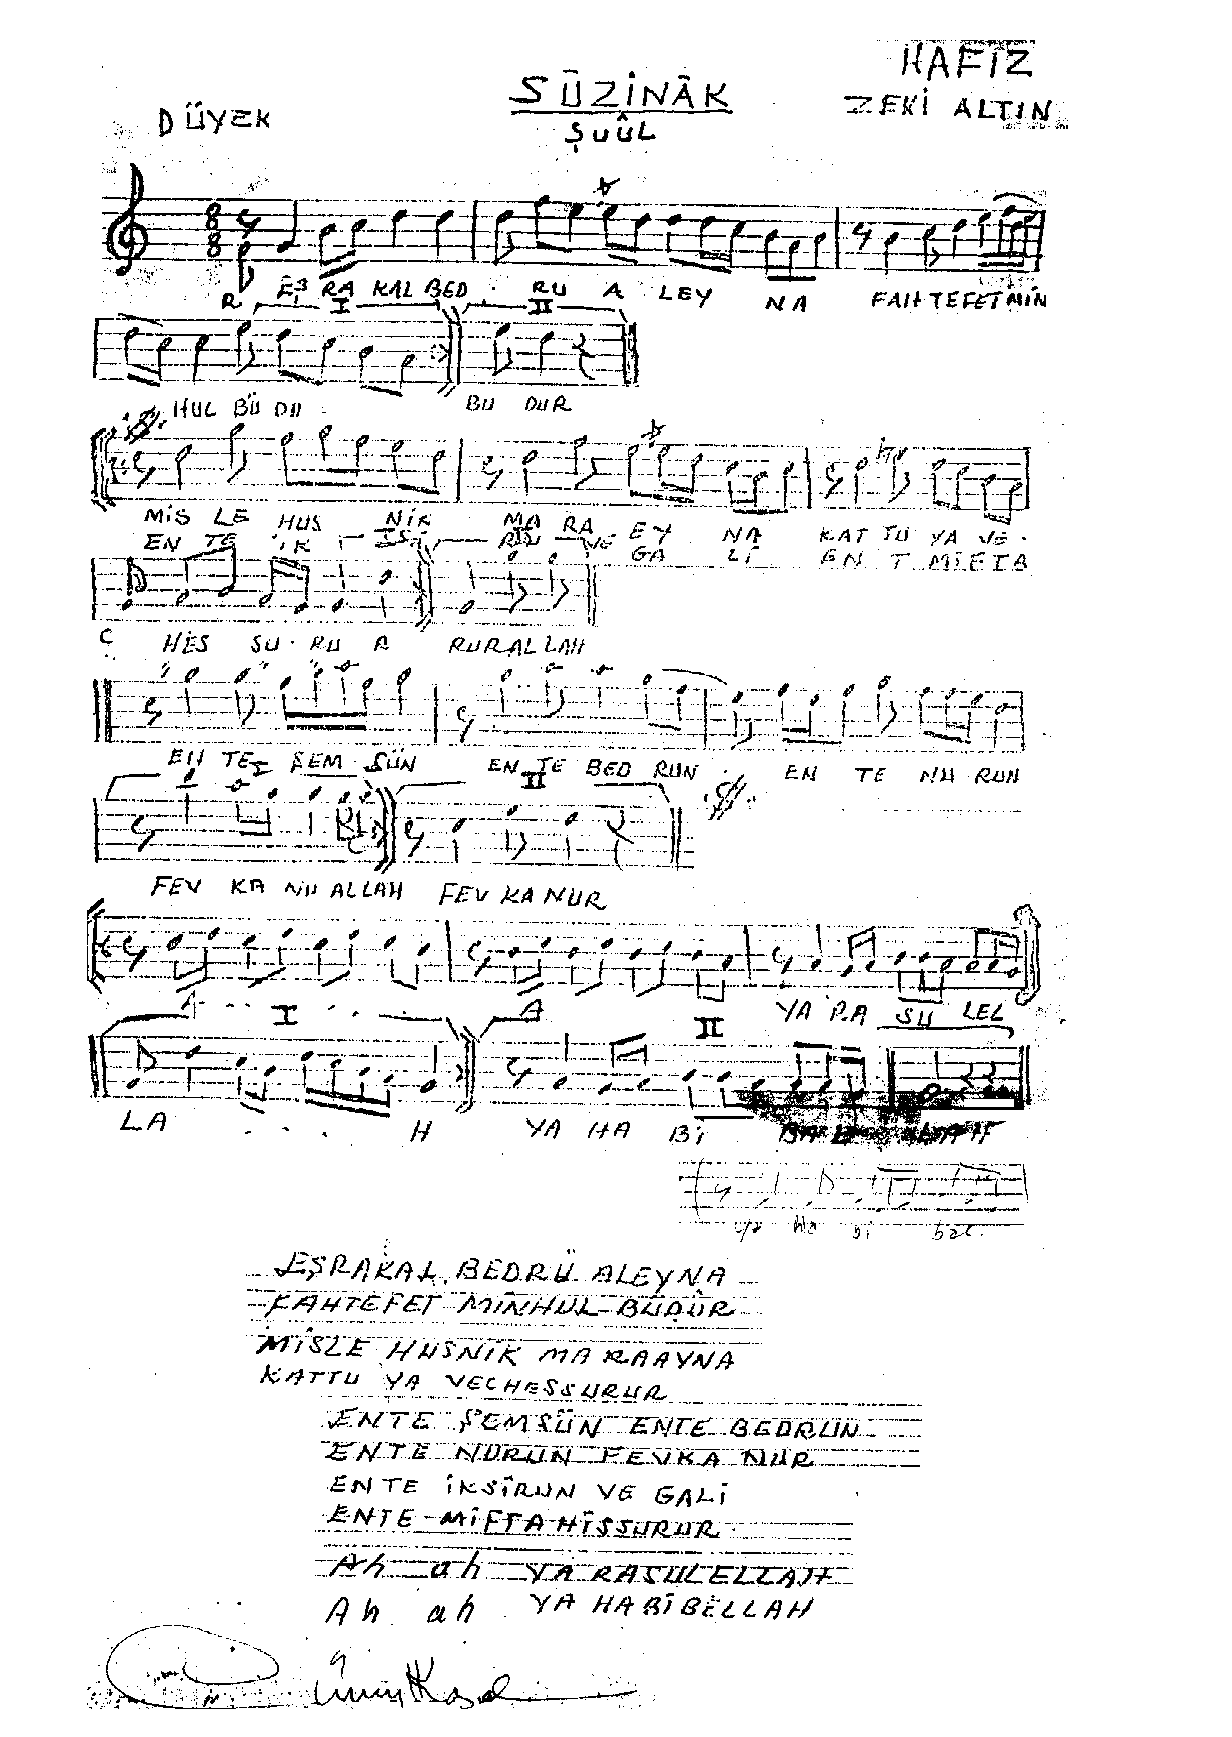 HAFIZ
DÜYEK
SÛZİNÂK
ZEKİ ALTIN
ŞUÛL
8
8
EŞ RA KAL BED RU A LEY NA FAH TEFET MİN
I II
HUL BÜ DU BU DUR
MİS LE HUS NİK MA RA EY NA KAT TU YA VE
EN TE İK GA LÎ EN T MİFTA
C HES SU RU R RUR ALLAH
EN TE ŞEM SÜN EN TE BED RUN EN TE NU RUN
I II
FEV KA NU ALLAH FEV KA NUR
YA RA SU LEL
A I A II
LA H YA HA Bİ
ya Ha bi
EŞRAKAL BEDRÜ ALEYNA
FAHTEFET MİNHUL BÜDÛR
MİSLE HUSNİK MA RAAYNA
KATTU YA VECHESSURUR
ENTE ŞEMSÜN ENTE BEDRUN
ENTE NURUN FEVKA NUR
ENTE İKSÎRUN VE GALİ
ENTE MİFTAHİSSURUR
Ah ah YA RASULELLAH
Ah ah YA HABÎBELLAH